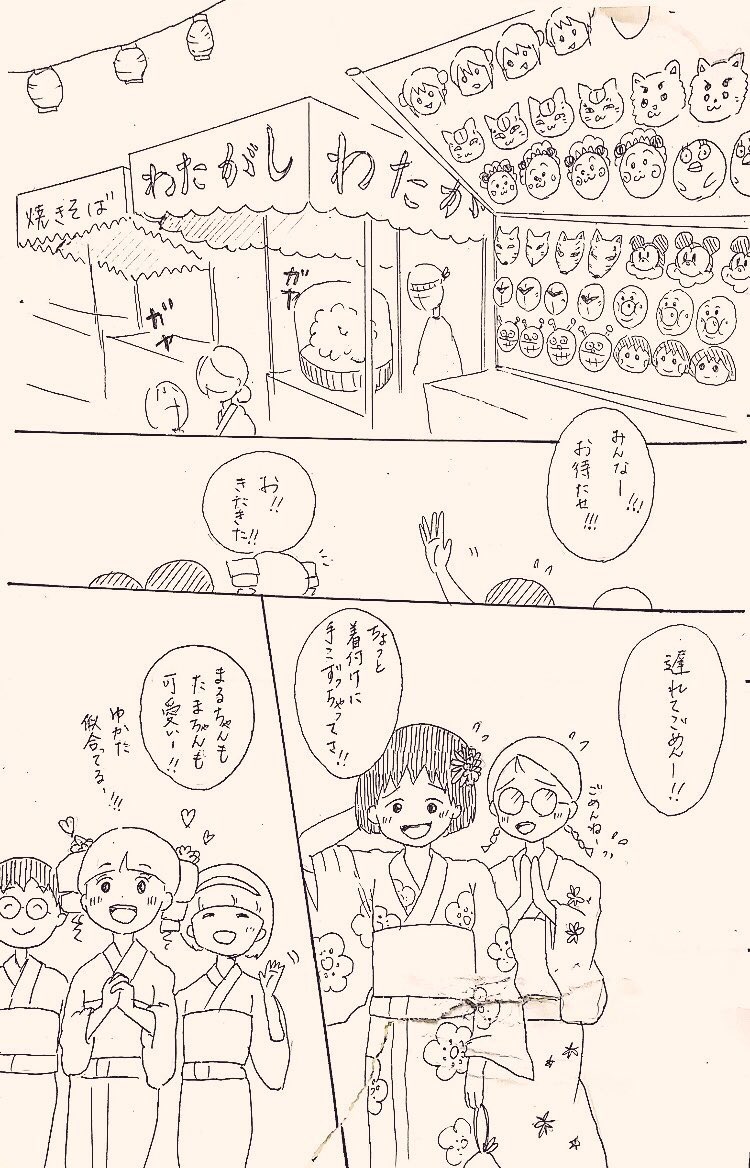 焼きそば
わたがし
わたが
ガヤ
ガヤ
みんなー!!!
お待たせ!!!
お!!
きたきた!!
遅れてごめんー!!
ちょっと
着付けに
手こずっちゃってさ!!
ごめんね、
まるちゃんも
たまちゃんも
可愛いー!!
ゆかた
似合ってる、!!!